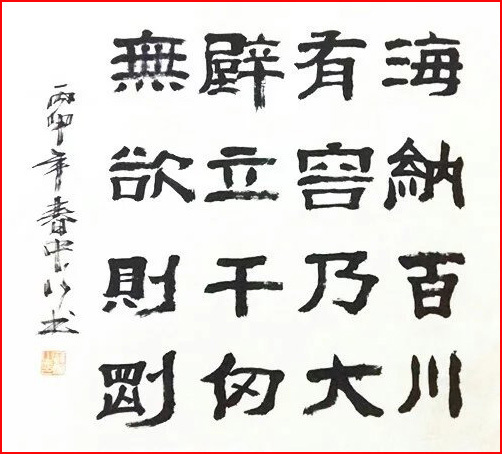 海納百川
有容乃大
壁立千仞
無欲則剛
丙申年春中山书